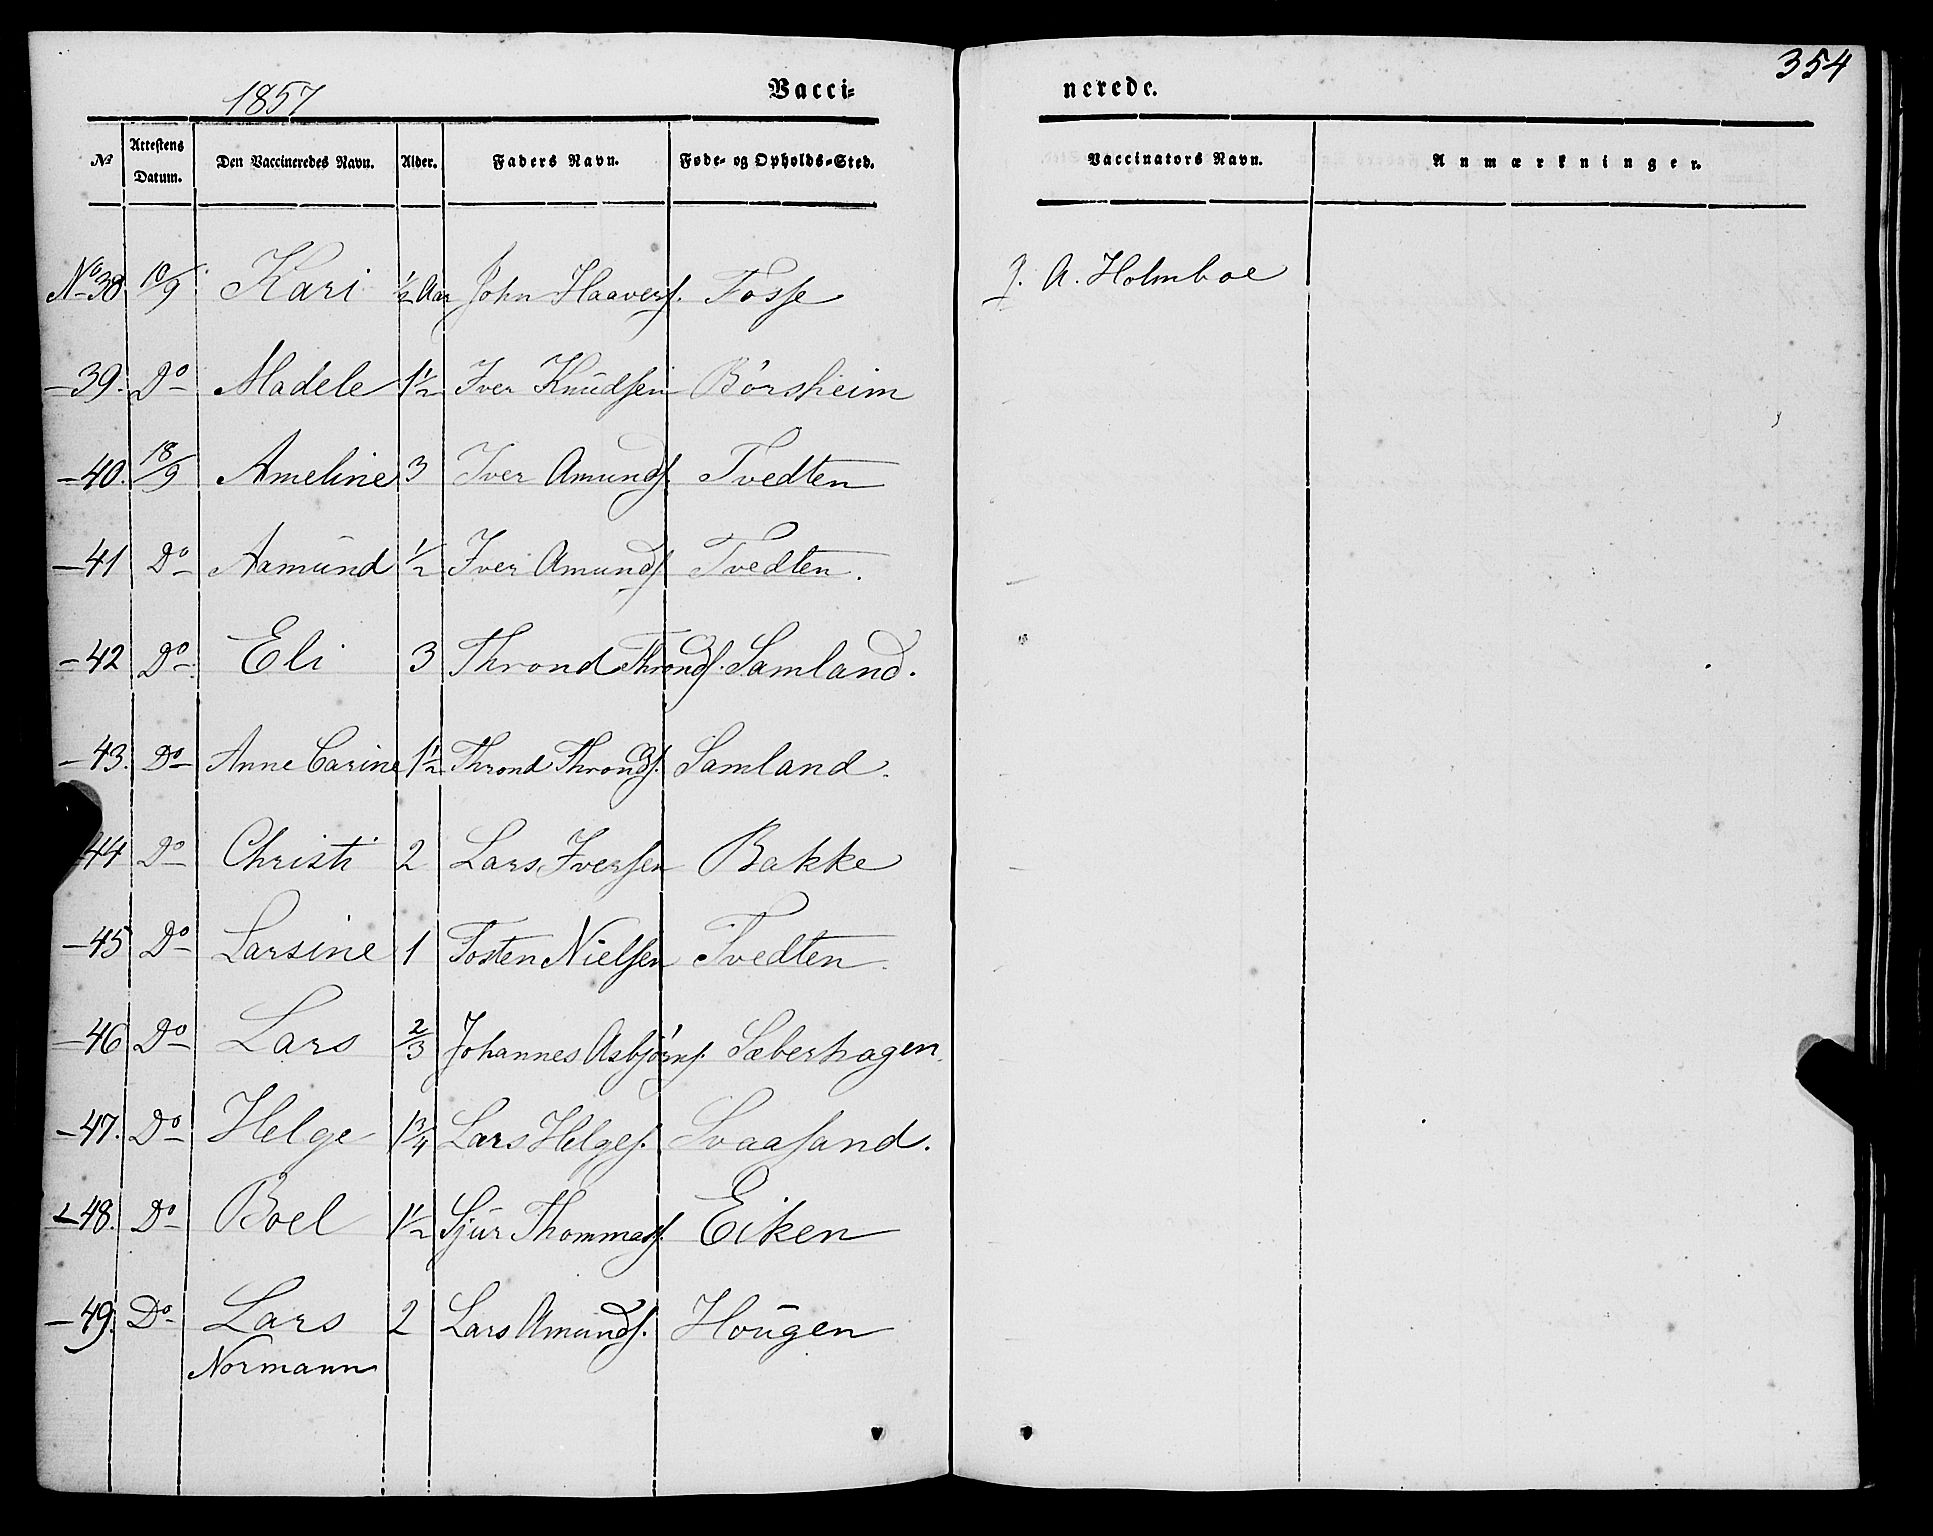 354
1857 Vacci- nerede.
№ Attestens Datum. Den Vaccineredes Navn. Alder. Faders Navn. Føde- og Opholds-Sted. Vaccinators Navn. Anmærkninger.
No 38 10/9 Kari 1/2 Aar John Haavers. Fosse J. A. Holmboe
- 39. Do Madele 1 1/2 Iver Knudsen Børsheim
- 40. 18/9 Ameline 3 Iver Amunds. Tvedten
- 41 Do Aamund 1/2 Iver Amunds Tvedten.
- 42 Do Eli 3 Thrond Thronds. Samland.
- 43. Do Anne Carine 1 1/2 Thrond Thronds. Samland.
44 Do Christi 2 Lars Iversen Bakke
- 45 Do Larsine 1 Tosten Nielsen Tvedten.
- 46 Do Lars 2/3 Johannes Asbjørns. Sæberhagen.
- 47. Do Helge 1 3/4 Lars Helges. Svaasand.
- 48. Do Boel 1 1/2 Sjur Thommass. Eiken
- 49. Do Lars 2 Lars Amunds. Hougen
Normann